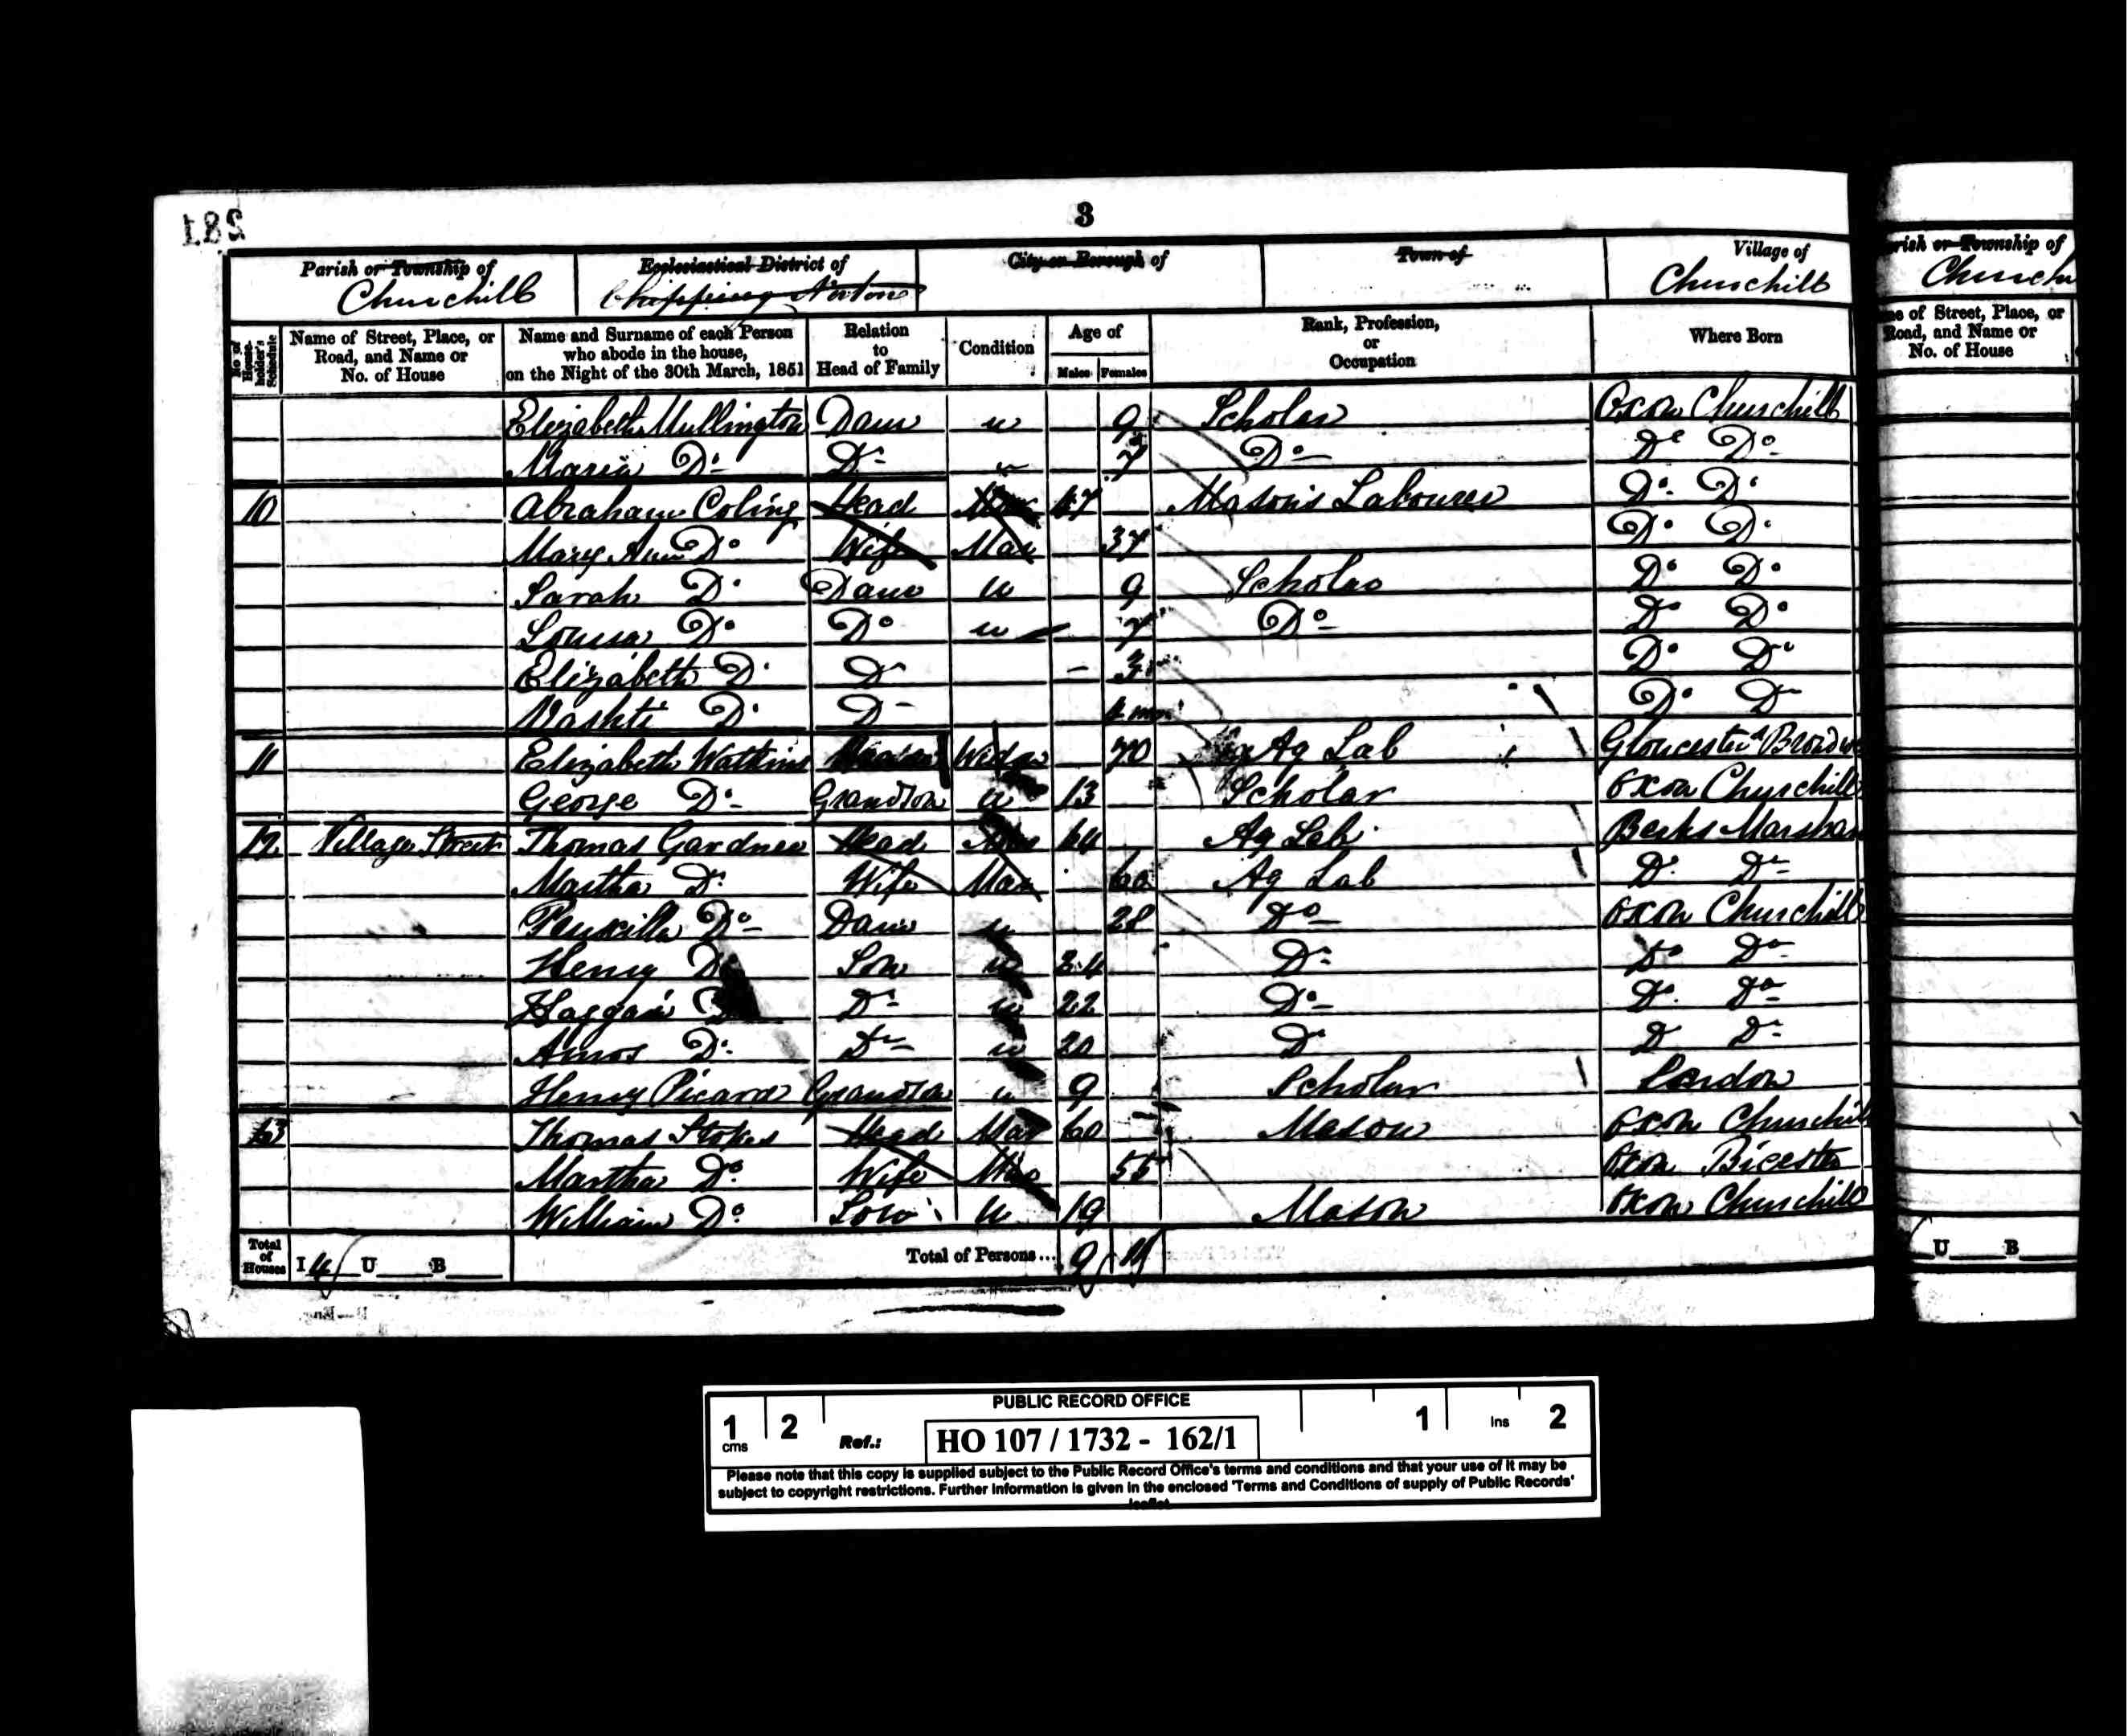 281
3
Parish or Township of
Churchill
Ecclesiastical District of
Chipping Norton
City or Borough of
Town of
Village of
Churchill
No. of Householder's Schedule
Name of Street, Place, or Road, and Name or No. of House
Name and Surname of each Person who abode in the house, on the Night of the 30th March, 1851
Relation to Head of Family
Condition
Age of
Males Females
Rank, Profession, or Occupation
Where Born
Elizabeth Mullington Daur u 9 Scholar Oxon Churchill
Maria Do Do u 7 Do Do Do
10 Abraham Coling Head Mar 47 Mason's Labourer Do Do
Mary Ann Do Wife Mar 37 Do Do
Sarah Do Daur u 9 Scholar Do Do
Louisa Do Do u 7 Do Do Do
Elizabeth Do Do 3 Do Do
Vashti Do Do 4 mo Do Do
11 Elizabeth Watkins Widow 70 Ag Lab Gloucester
George Do Grandson u 13 Scholar Oxon Churchill
12 Village Street Thomas Gardner Head Mar 64 Ag Lab Berks
Martha Do Wife Mar 60 Ag Lab Do Do
Do Daur u 28 Do Oxon Churchill
Henry Do Son u 24 Do Do Do
Haggai Do Do u 22 Do Do Do
Amos Do Do u 20 Do Do Do
Henry Picard Grandson u 9 Scholar London
13 Thomas Stokes Head Mar 60 Mason Oxon Churchill
Martha Do Wife Mar 55 Oxon Bicester
William Do Son u 19 Mason Oxon Churchill
Total of Houses I 4 U B Total of Persons... 9 11
rish or Township of
Church
me of Street, Place, or
Road, and Name or
No. of House
U B
PUBLIC RECORD OFFICE
1 cms 2 Ref.: HO 107 / 1732 - 162/1 1 ins 2
Please note that this copy is supplied subject to the Public Record Office's terms and conditions and that your use of it may be
subject to copyright restrictions. Further information is given in the enclosed 'Terms and Conditions of supply of Public Records'
leaflet